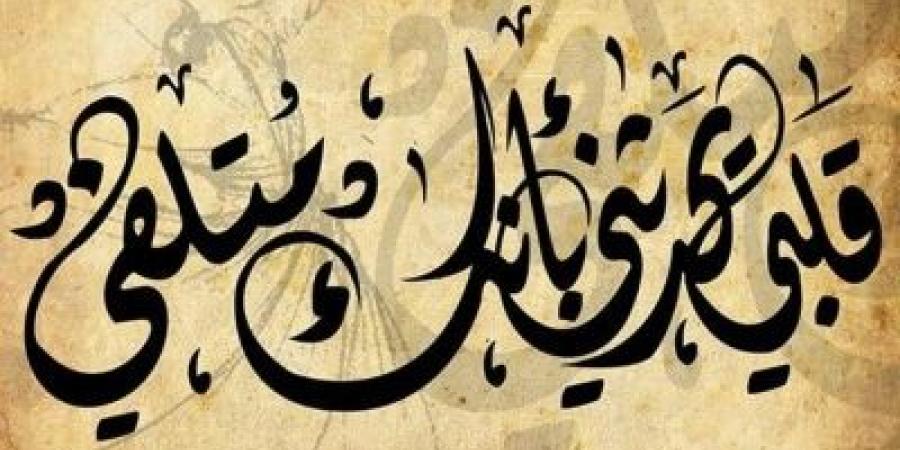 قلبي يحدثني بأنك متلفي